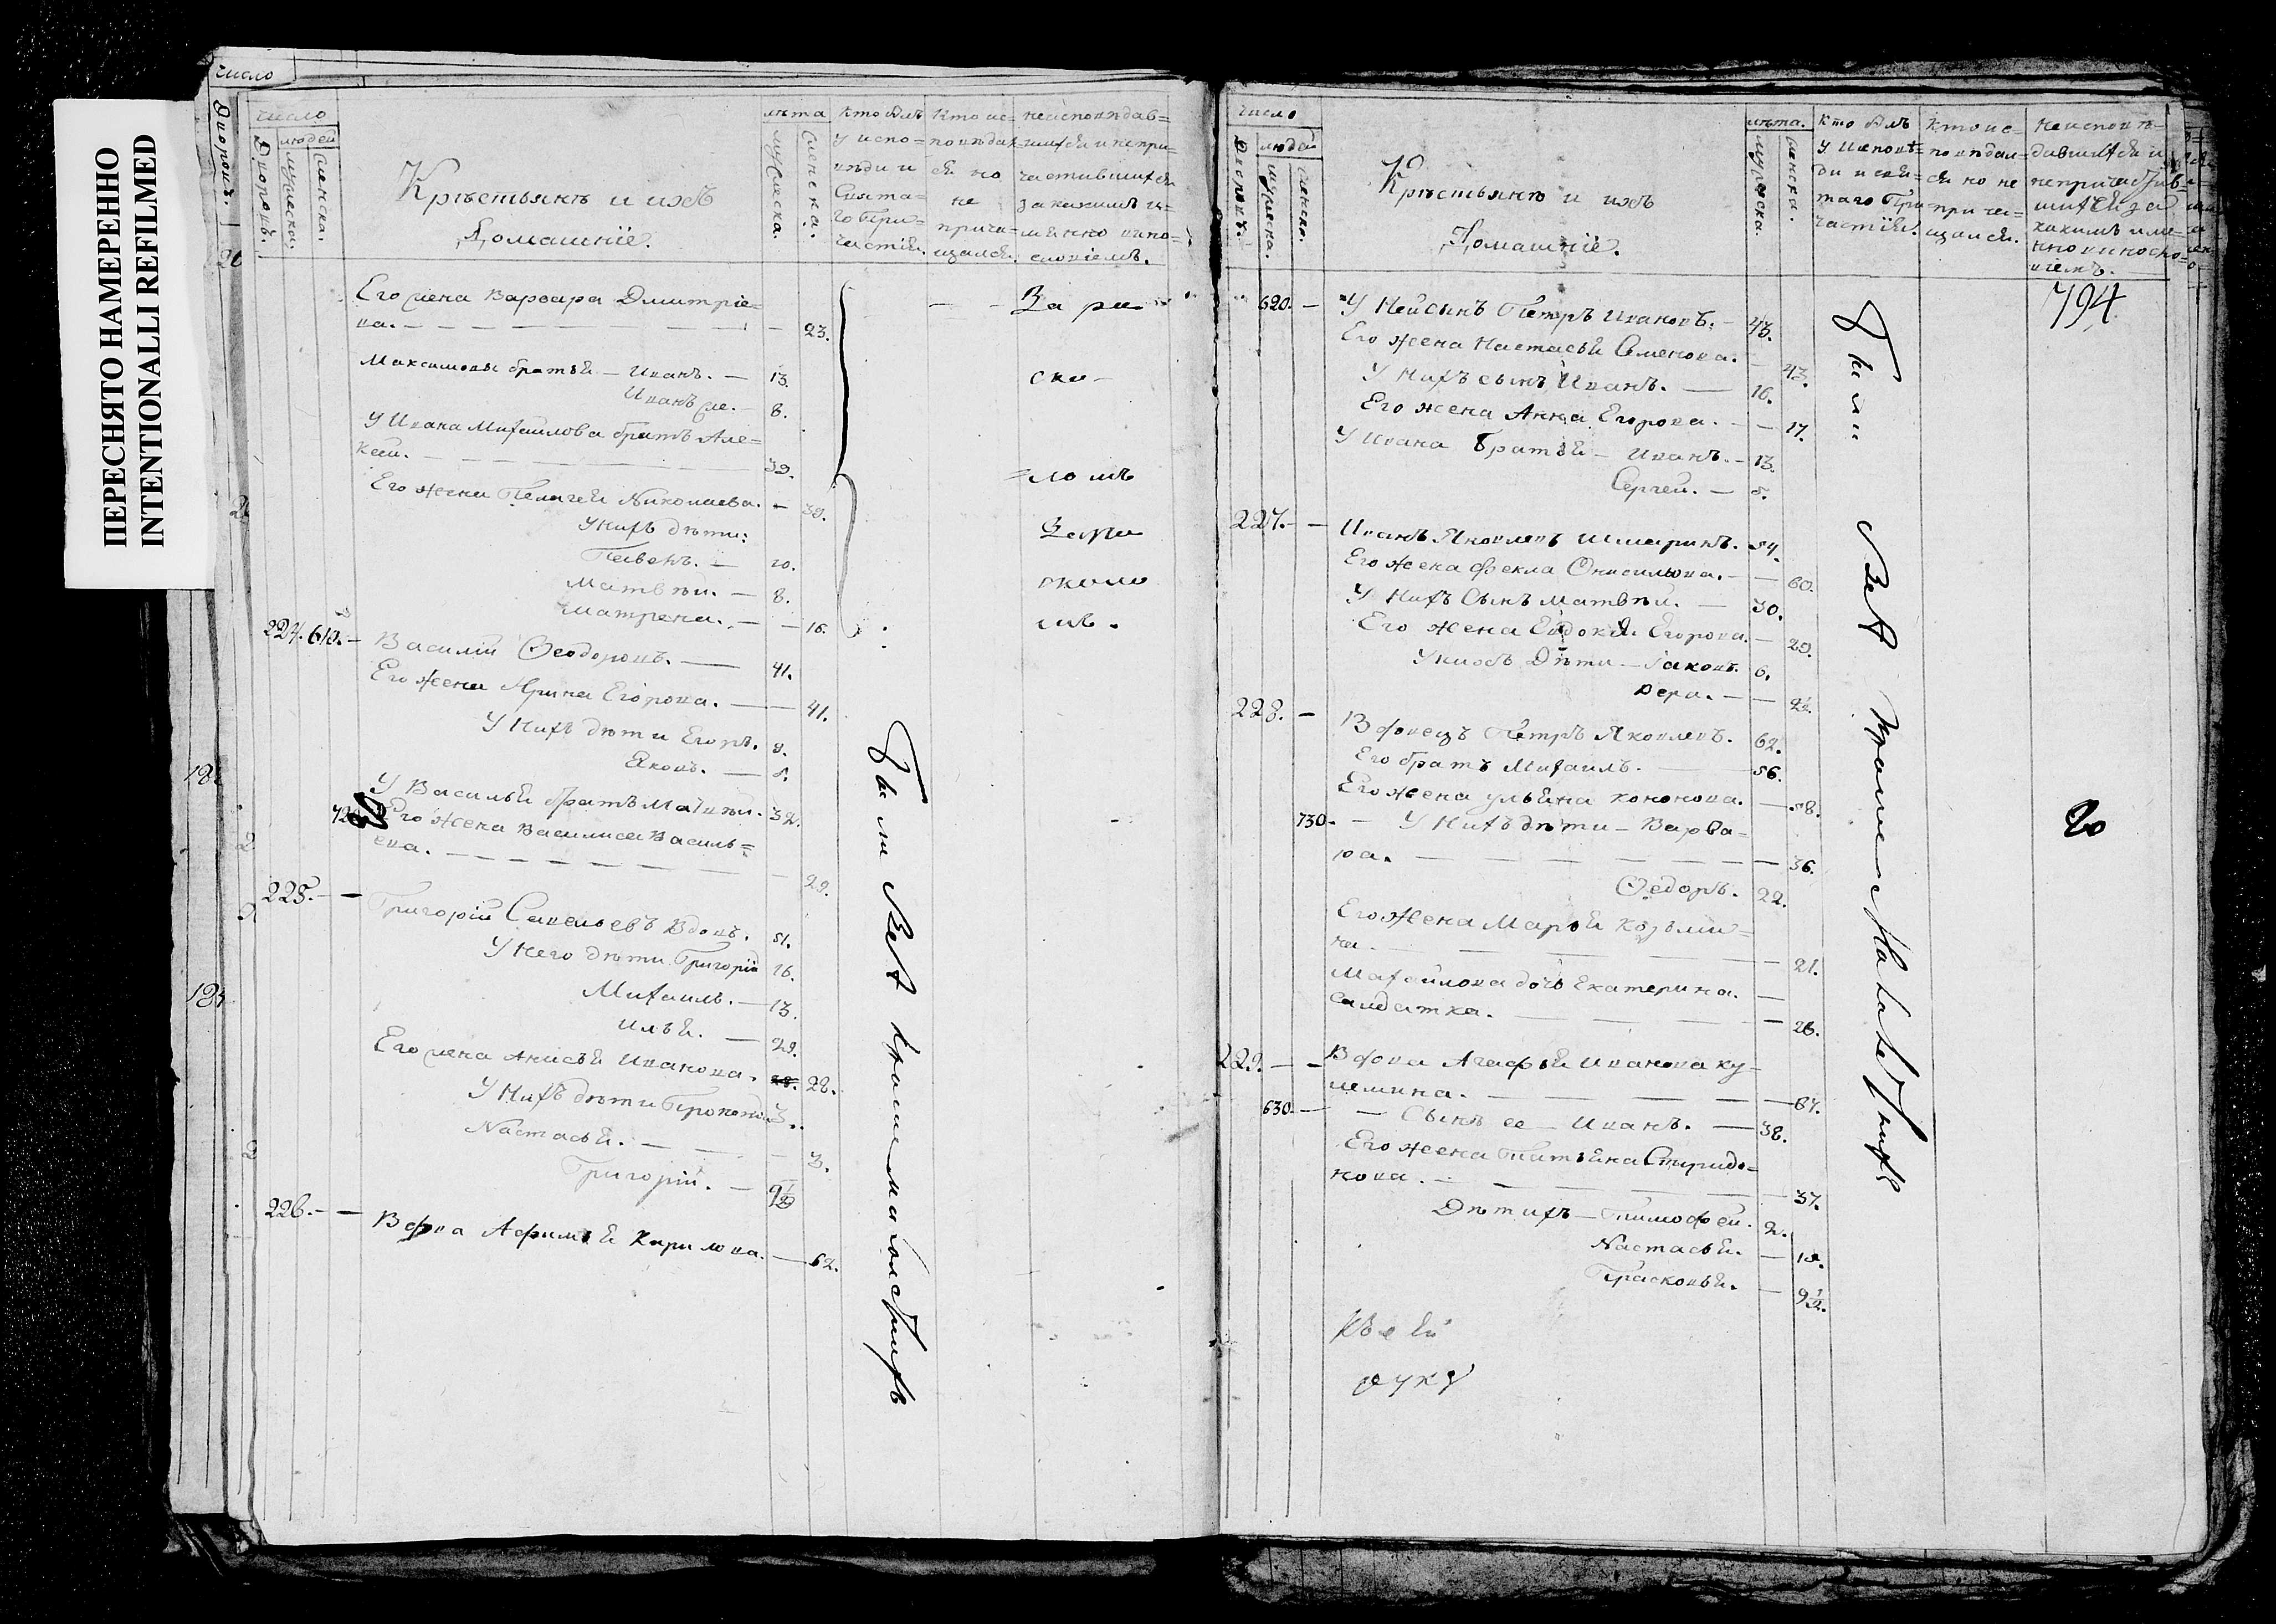 ПЕРЕСНЯТО НАМЕРЕННО
INTENTIONALLI REFILMED
число
Дворовъ.
число
людей
Дворовъ.
мужеска.
женска.
Крѣстьянѣ и ихъ
Домашніе.
лѣта
мужеска.
женска.
кто былъ
у испо=
вѣди и
Свята=
го при=
частія.
Кто ис=
повѣдал=
ся но
не
прича=
щался.
неисповѣдав=
шихся и непри=
частившихся
за какимъ и=
менно вино=
словіемъ.
Его жена Варвара Дмитріе=
ва. — 23.
За ра
Максимовы братья — Иванъ. — 13.
ско-
Иванъ же. — 8.
У Ивана Михайлова братъ Але=
ксѣй. — 39.
=ломъ
Его жена Пелагея Николаева. — 39.
У нихъ дѣти:
За ра
10.
Матвѣй. — 8.
сколо
Матрена. — 16.
мъ.
224. 610. — Василій Ѳеодоровъ. — 41.
Его жена Ярина Егорова. — 41.
У нихъ дѣти Егоръ. 9.
Яковъ. — 5.
У Василья братъ Матвѣй. 32.
720. Его жена Василиса Василь=
ева. — 29.
225. — Григорій Савельевъ Вдовъ. 51.
У него дѣти Григорій 16.
Михаилъ. — 13.
Илья. — 29.
Его жена Анисья Иванова. 28. 28.
У нихъ дѣти 3.
Настасья. — 3.
Григорій. — 9 1/2
226. — Вдова Афимья Кирилова. — 62.
Были всѣ
число
людей
Дворовъ.
мужеска.
женска.
Крѣстьянѣ и ихъ
Домашніе.
лѣта.
мужеска.
женска.
Кто былъ
у исповѣ=
ди и свя=
таго При
частія.
Кто ис=
повѣдал=
ся но не
прича=
щался.
Неисповѣ=
давшихся и
непричастив=
шихся за
какимъ име=
нно виносло=
віемъ.
794
620. — У ней сынъ Петръ Ивановъ. — 43.
Его жена Настасья Семенова. — 43.
У нихъ сынъ Иванъ. — 16.
Его жена Анна Егорова. — 17.
У Ивана братья — Иванъ. — 13.
Сергей. — 5.
227. — Иванъ Яковлевъ Шмаринъ. 54.
Его жена Фекла Онисимова. — 60.
У нихъ сынъ Матвѣй. — 30.
Его жена Евдокія Егорова. — 29.
У нихъ Дѣти — Іаковъ. 6.
Вера. —
228. — Вдовецъ Петръ Яковлевъ. 62.
Его братъ Михаилъ. — 56.
Его жена Ульяна Кононова. — 58.
730. — У нихъ дѣти — Варва=
ра. — 36.
20
Ѳедоръ. 22.
Его жена Марья Козьми=
на. — 21.
Михайлова дочь Екатерина. —
Салдатка. — 26.
229. — Вдова Агафья Иванова Ку=
лешина. — 67.
630. — Сынъ ее — Иванъ. — 38.
Его жена Татьяна Спиридо=
нова. — 37.
Дѣти ихъ — Тимофей. 2.
Настасья. —
Прасковья. — 9 1/2.
Были всѣ
руку